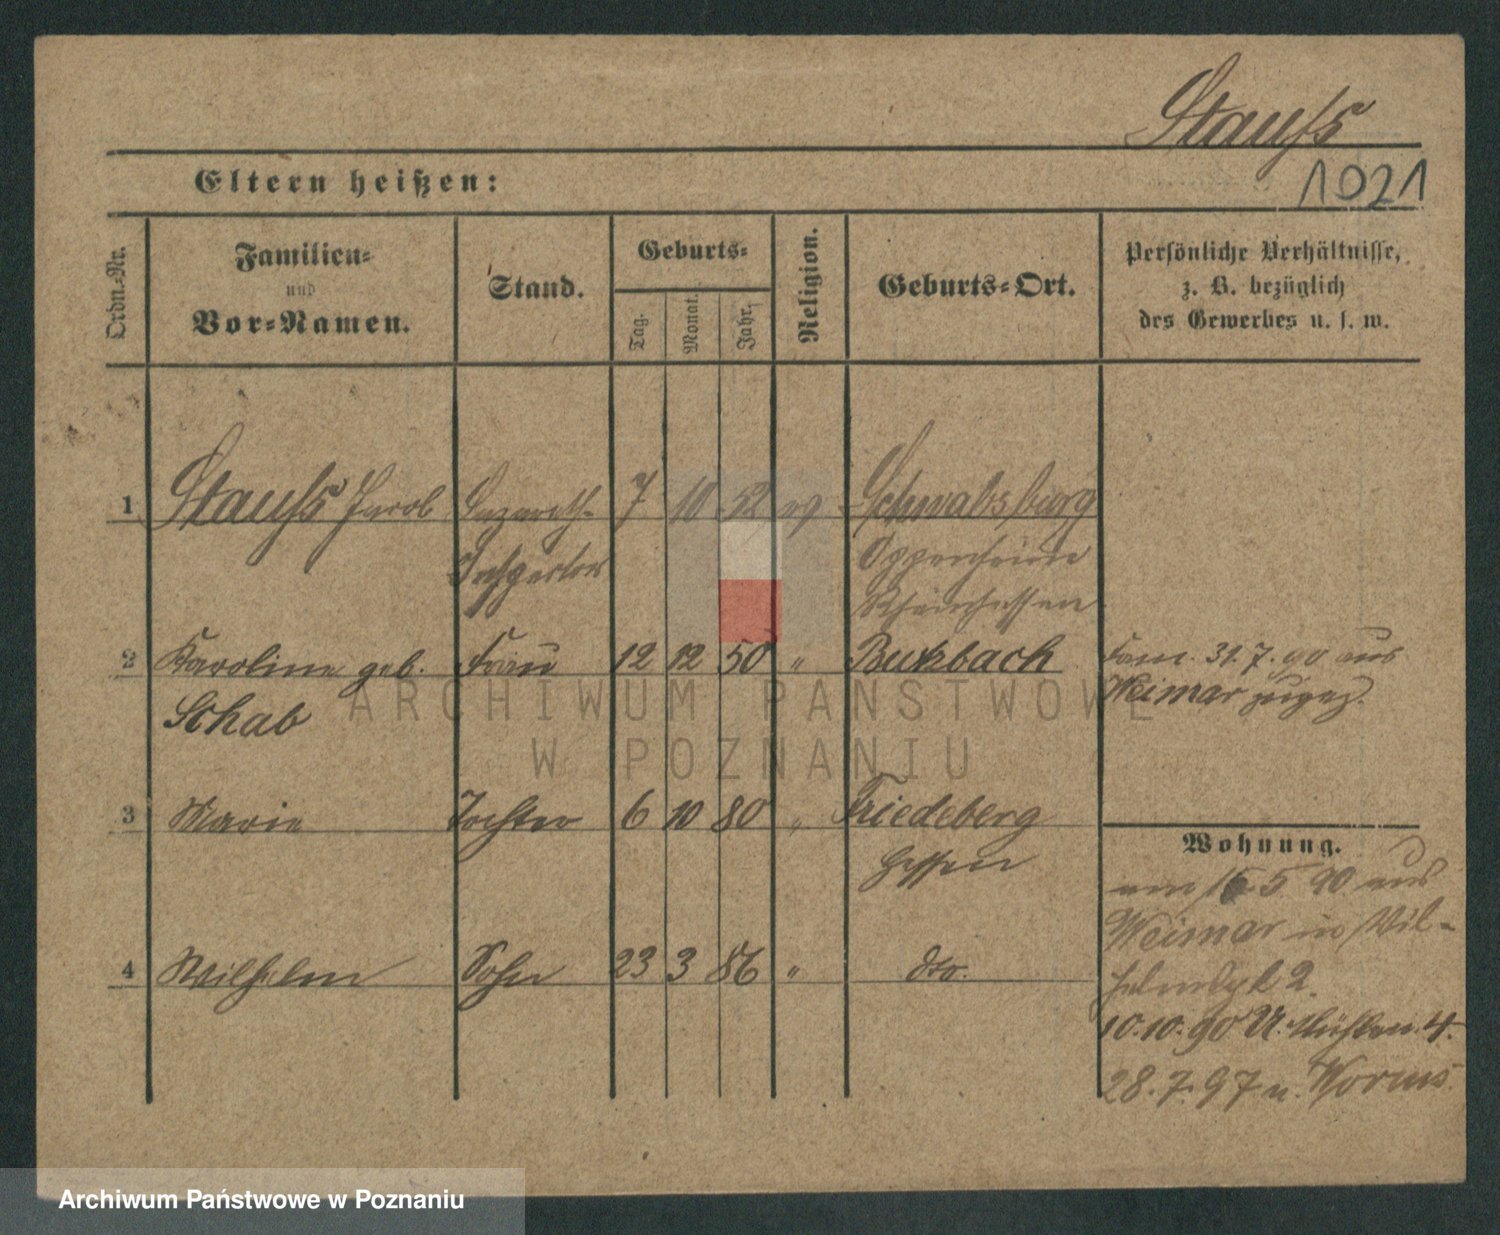 Stauss
1021
Eltern heißen:
Ordn.-Nr.
Familien-
und
Vor-Namen.
Stand.
Geburts-
Tag.
Monat.
Jahr.
Religion.
Geburts-Ort.
Persönliche Verhältnisse,
z. B. bezüglich
des Gewerbes u. s. w.
1 Stauss Jacob Lazareth- 7 10 52 ev Schwabsburg
Inspector Oppenheim
Rheinhessen
2 Karoline geb. Frau 12 12 50 " Butzbach
Schab
Fam. 31.7.90 aus
Weimar zugez.
3 Marie Tochter 6 10 80 " Friedeberg
Hessen
4 Wilhelm Sohn 23 3 86 " dto.
Wohnung.
am 15 5 90 aus
Weimar in Wil-
2.
10.10.90 U. Mühlen. 4.
28.7.97 n. Worms.
ARCHIWUM PAŃSTWOWE
W POZNANIU
Archiwum Państwowe w Poznaniu